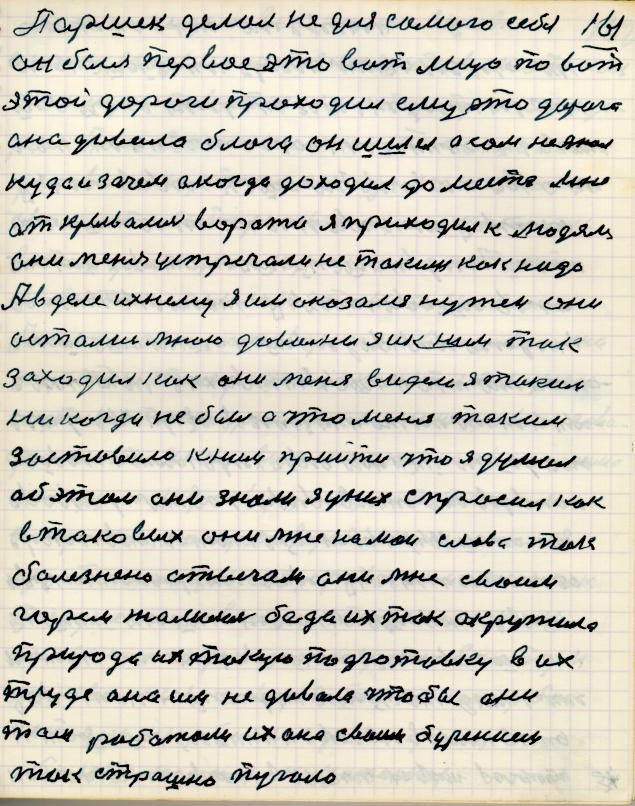 Паршек делал не для самого себя 161
он был первое это вот лицо по вот
этой дороги проходил ему это дорога
она довала блага он шшел а сам не знал
куда и зачем а когда доходил до места мне
открывались ворота я приходил к людям
они меня устречали не таким как надо
А в деле ихнему я им оказался нужен они
остались мною довольни я и к ним так
заходил как они меня видели я таким
никогда не был а что меня таким
заставило к ним прийти что я думал
об этом они знали я у них спросил как
в таковых они мне на мои слова так
болезнено отвечали они мне своим
горем жалились беда их так окружила
природа их такую подготовку в их
труде она им не довала чтобы они
там работали их она своим бурением
так страшно пугала